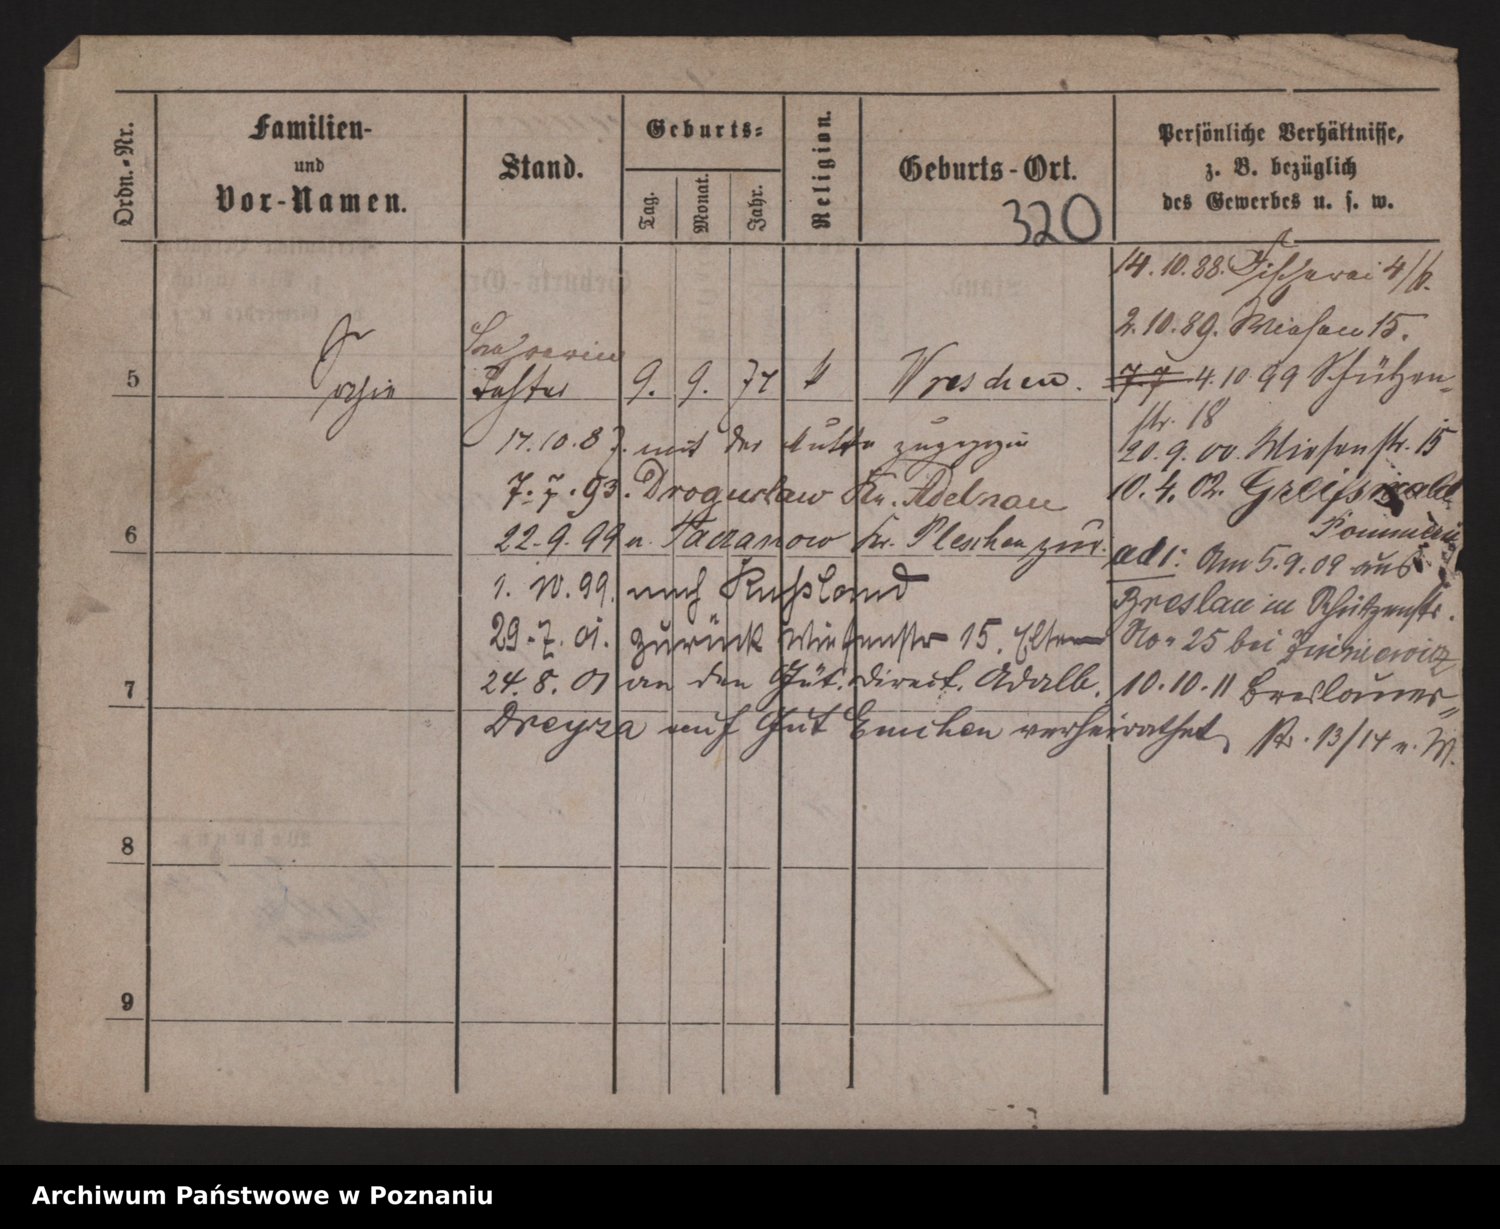 Ordn.-Nr.
Familien-
und
Vor-Namen.
Stand.
Geburts-
Tag.
Monat.
Jahr.
Religion.
Geburts-Ort.
320
Persönliche Verhältnisse,
z. B. bezüglich
des Gewerbes u. s. w.
14. 10. 88. Fischerei 4/6.
2. 10. 89. Wiesen 15.
5 Sophie Tochter 9. 9. 74 k Wreschen.
7.7 4. 10 99 Schützen-
str. 18
17. 10. 87. mit der Mutter zugezogen
20. 9. 00. Wiesenstr. 15
7. 7. 93. Droguslaw Kr. Adelnau
10. 4. 02. Greifswald
Pommern
6
22. 9. 99 u. Kr. Pleschen zur.
ad 1: Am 5. 9. 09 aus
1. 10. 99. nach Russland
Breslau in Schützenstr.
29. 7. 01. zurück Wiesenstr 15. Eltern
No 25 bei
7
24. 8. 01 an den Güt. direct. Adalb.
10. 10. 11 Breslauer-
Dreyza auf Gut verheirathet
str. 13/14 u. W.
8
9
Archiwum Państwowe w Poznaniu